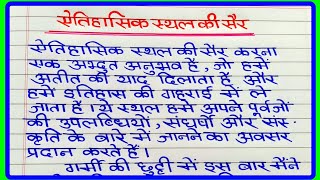 ऐतिहासिक स्थल की सैर
ऐतिहासिक स्थल की सैर करना
एक अद्भुत अनुभव है, जो हमें
अतीत की याद दिलाता है और
हमें इतिहास की गहराई में ले
जाता है। ये स्थल हमें अपने पूर्वजों
की उपलब्धियों, संघर्षों और संस्-
कृति के बारे में जानने का अवसर
प्रदान करते हैं।
गर्मी की छुट्टी में इस बार मैंने